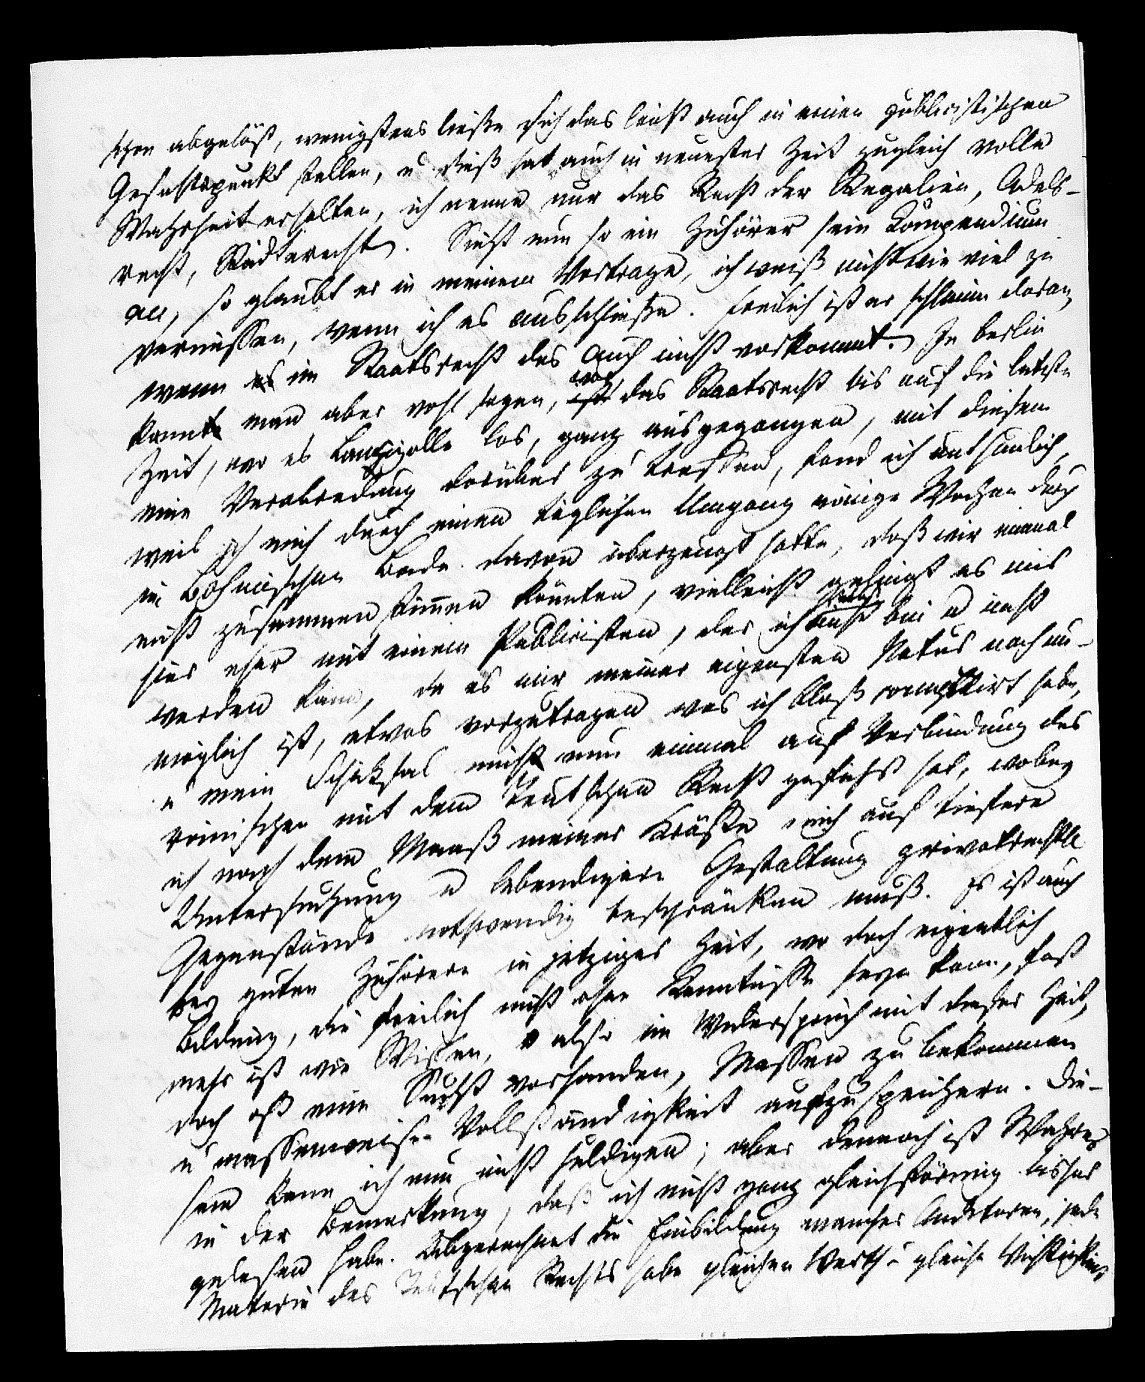 schon abgelößt, wenigstens ließe sich das leicht auch in einen publicistischen
Gesichtspunkt stellen, u dieß hat auch in neuester Zeit zugleich volle
Wahrheit erhalten, ich nenne nur das Recht der Regalien, Adels-
recht, Städterecht. Sieht nun so ein Zuhörer sein Compendium
an, so glaubt er in meinem Vortrage, ich weiß nicht wie viel zu
vermissen, wenn ich es ausschließe. Freilich ist er schlimm daran,
wenn es im Staatsrecht das auch nicht vorkommt. In Berlin
konnte man aber wohl sagen, war das Staatsrecht bis auf die letzte
Zeit, wo es los, ganz ausgegangen, mit diesem
eine Verabredung darüber zu treffen, fand ich unthunlich,
weil ich mich durch einen täglichen Umgang einige Wochen durch
im Böhmischen Bade davon überzeugt hatte, daß wir einmal
nicht zusammen stimmen könnten, vielleicht gelingt es mir
hier eher mit einem Publicisten, der ich nicht bin u nicht
werden kann, da es mir meiner eigensten Natur nach un-
möglich ist, etwas vorzutragen was ich bloß compilirt habe,
u mein Schicksal mich nun einmal auf Verbindung des
römischen mit dem teutschen Recht geführt hat, wobey
ich nach dem Maaß meiner Kräfte mich auf tiefere
Untersuchung u lebendigere Gestaltung privatrechtle
Gegenstände nothwendig beschränken muß. Es ist auch
bey guten Zuhörern in jetziger Zeit, wo doch eigentlich
Bildung, die freilich nicht ohne Kenntnisse seyn kann, fast
mehr ist wie Wissen, also im Widerspruch mit dieser Zeit,
doch oft eine Sucht vorhanden, Massen zu bekommen
u massenweise Vollständigkeit aufzuspeichern. Die-
sem kann ich nun nicht huldigen; aber dennoch ist Wahres
in der Bemerkung, daß ich nicht ganz gleichförmig bisher
gelesen habe. Abgerechnet die Einbildung mancher Auditoren, jede
Materie des Teutschen Rechts habe gleichen Werth u gleiche